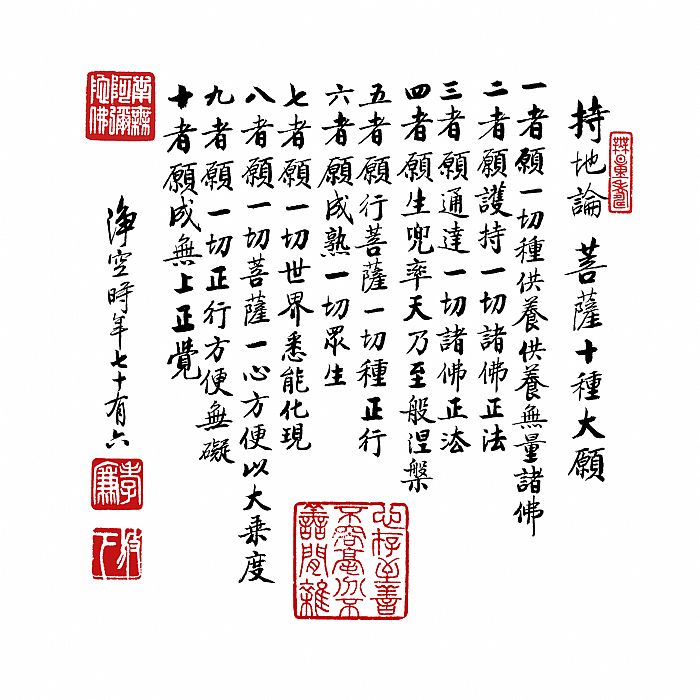 持地論 菩薩十種大願
一者願一切種供養供養無量諸佛
二者願護持一切諸佛正法
三者願通達一切諸佛正法
四者願生兜率天乃至般涅槃
五者願行菩薩一切種正行
六者願成熟一切眾生
七者願一切世界悉能化現
八者願一切菩薩一心方便以大乘度
九者願一切正行方便無礙
十者願成無上正覺
淨空時年七十有六
南無
阿彌
陀佛
孝廉
放下
心存至善
不容毫分不
善間雜